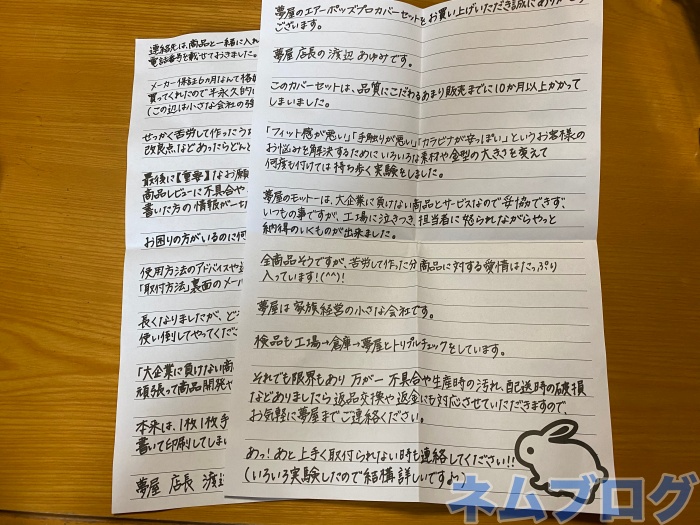 夢屋のエアーポッズプロカバーセットをお買い上げいただき誠にありがとう
ございます。
夢屋 店長の渡辺 あゆみです。
このカバーセットは、品質にこだわるあまり販売までに10か月以上かかって
しまいました。
「フィット感が悪い」「手触りが悪い」「カラビナが安っぽい」というお客様の
お悩みを解決するためにいろいろな素材や金型の大きさを変えて
何度も付けては持ち歩く実験をしました。
夢屋のモットーは、大企業に負けない商品とサービスなので妥協できず、
いつもの事ですが、工場に泣きつき担当者に怒られながらやっと
納得のいくものが出来ました。
全商品そうですが、苦労して作った分商品に対する愛情はたっぷり
入っています!(^^)!
夢屋は家族経営の小さな会社です。
検品も工場→倉庫→夢屋とトリプルチェックをしています。
それでも限界もあり 万が一 不具合や生産時の汚れ、配送時の破損
などありましたら返品交換や返金にも対応させていただきますので、
お気軽に夢屋までご連絡ください。
あっ!あと上手く取付られない時も連絡してください!!
(いろいろ実験したので結構詳しいですよっ)
連絡先は、商品と一緒に入れ
電話番号を載せておきました。
メーカー保証6カ月なんて格
買ってくれたので半永久的に
(この辺は小さな会社の強
せっかく苦労して作ったこ
改良点などあったらどんと
最後に【重要】なお願
商品レビューに不具合や
書いた方の情報が一
お困りの方がいるのに何
使用方法のアドバイスや
「取付方法」裏面のメー
長くなりましたが、ど
使い倒してやってくださ
「大企業に負けない商
頑張って商品開発や
本来は、1枚1枚手
書いて印刷してしま
夢屋 店長 渡辺
ネムブログ